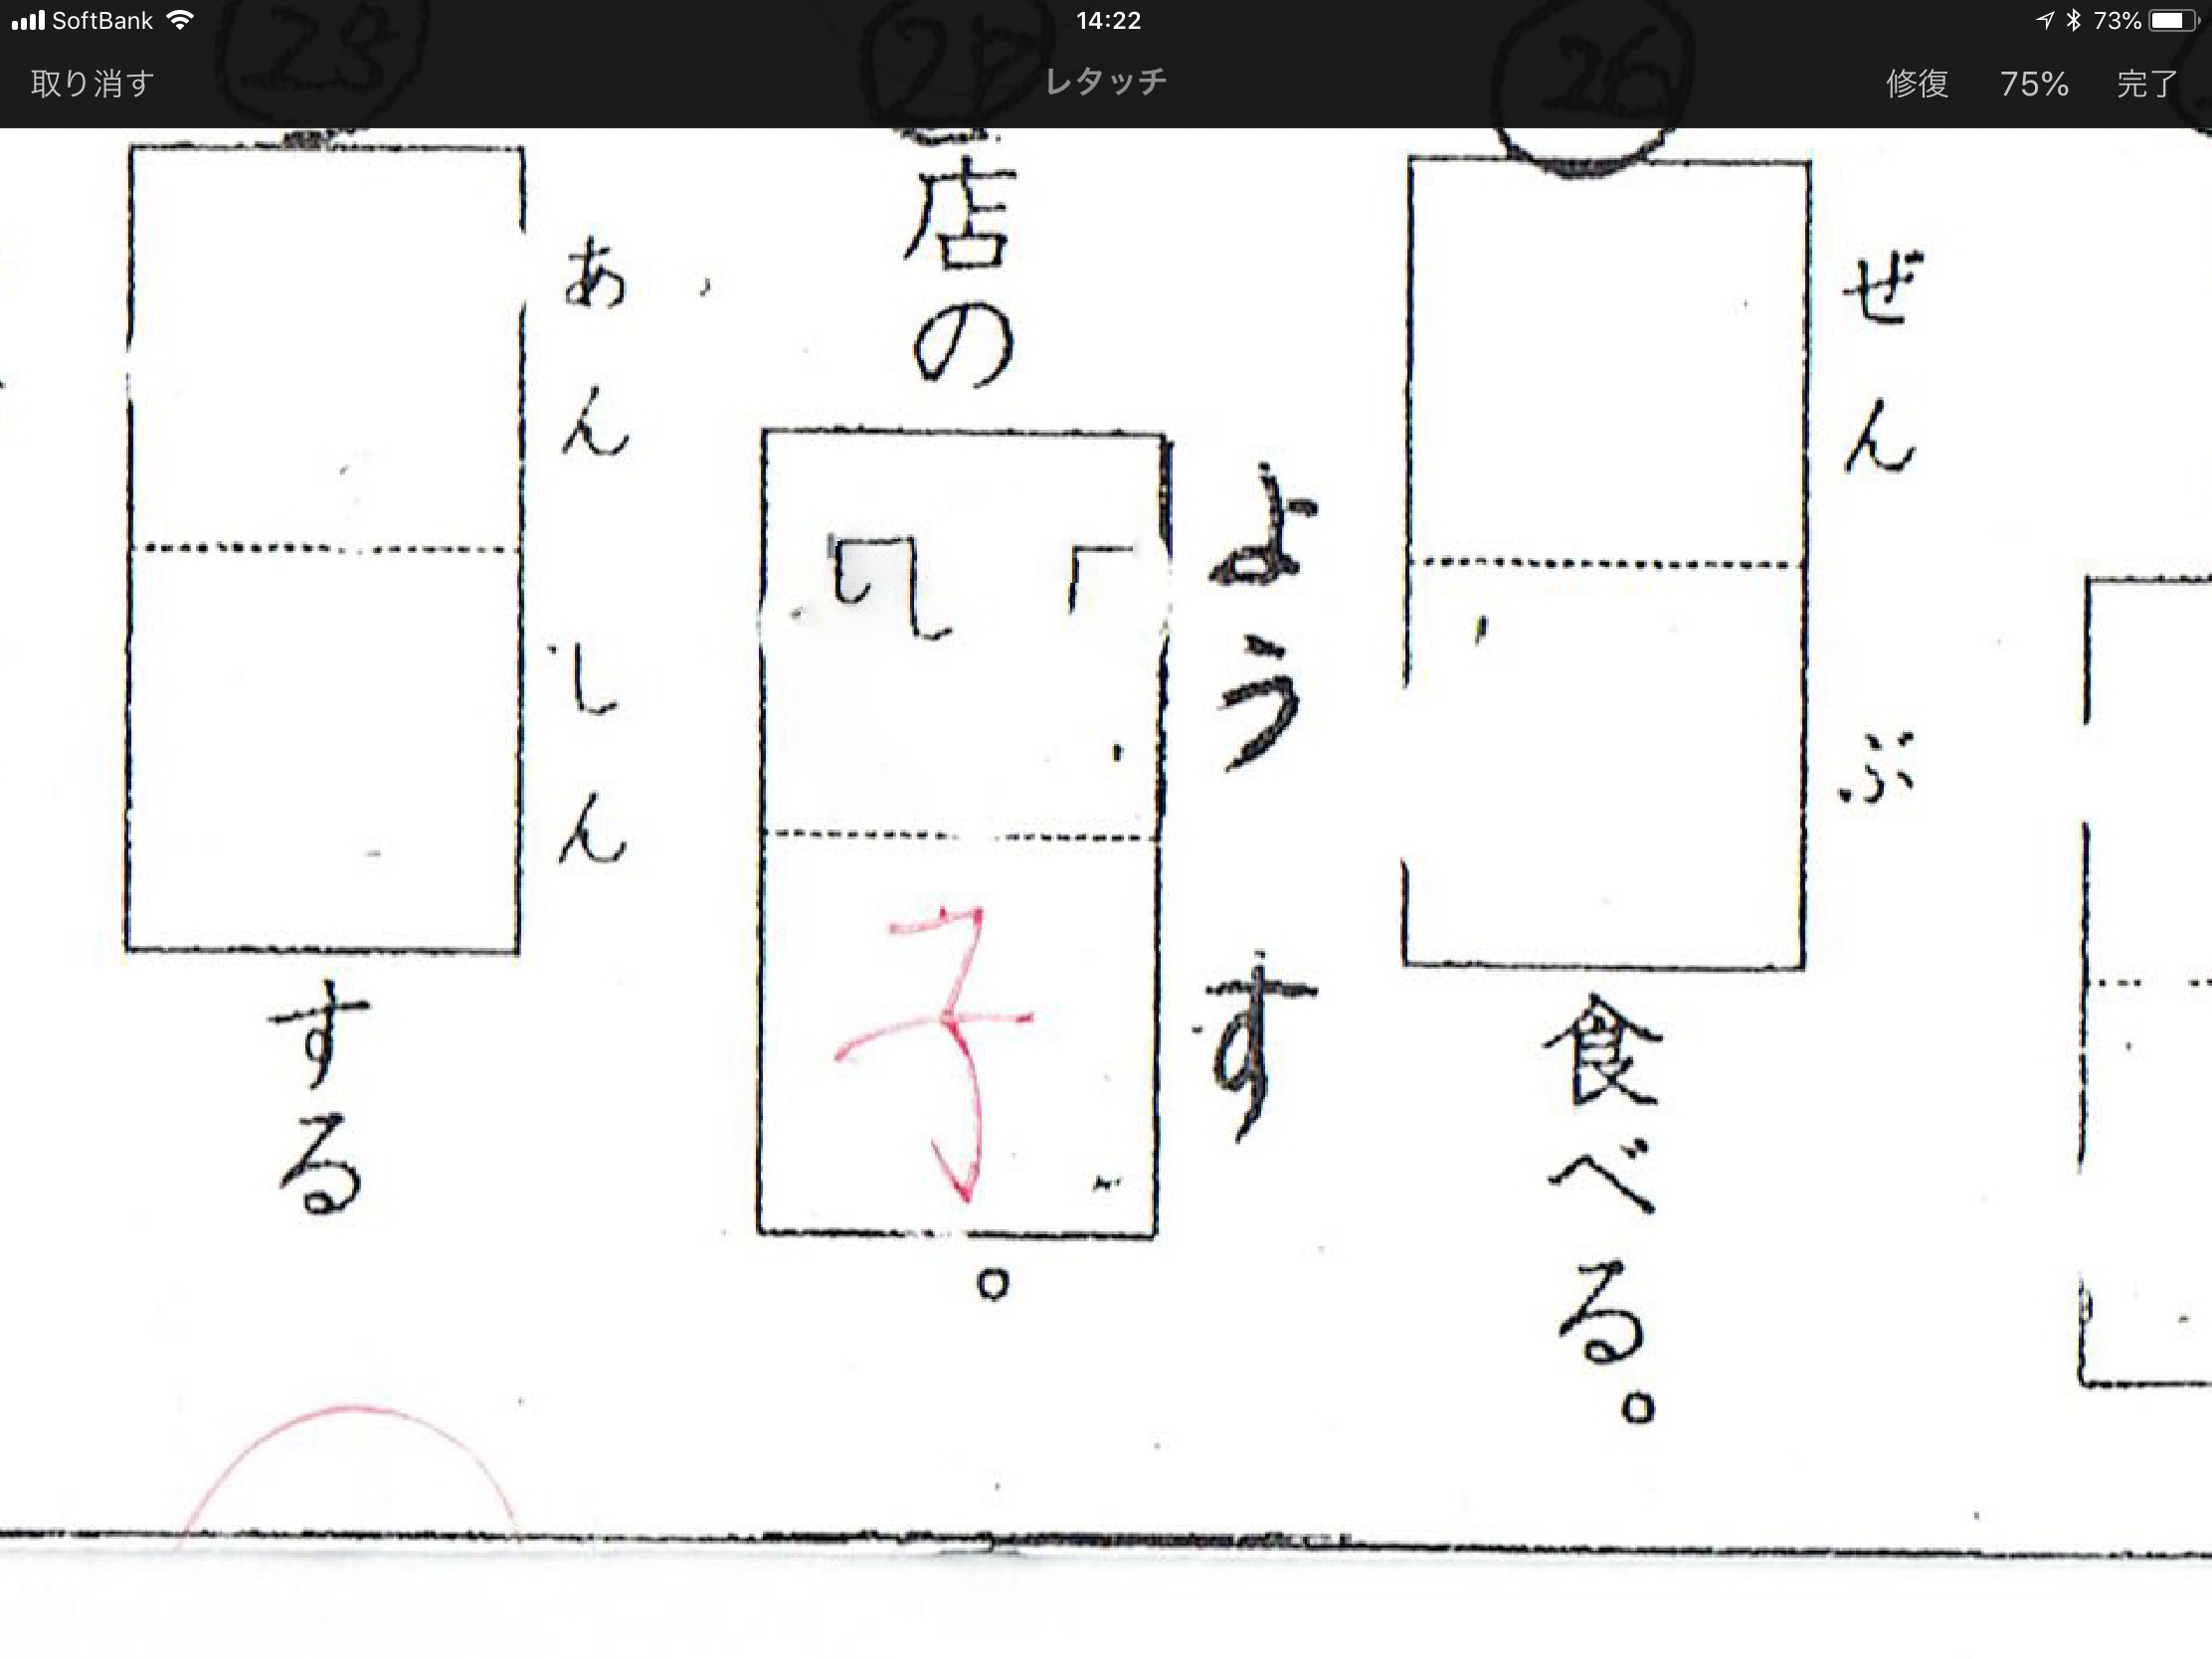 SoftBank 14:22 73%
取り消す レタッチ 修復 75% 完了
26
ぜんぶ
食べる。
店の
ようす
子
。
28
あんしん
する